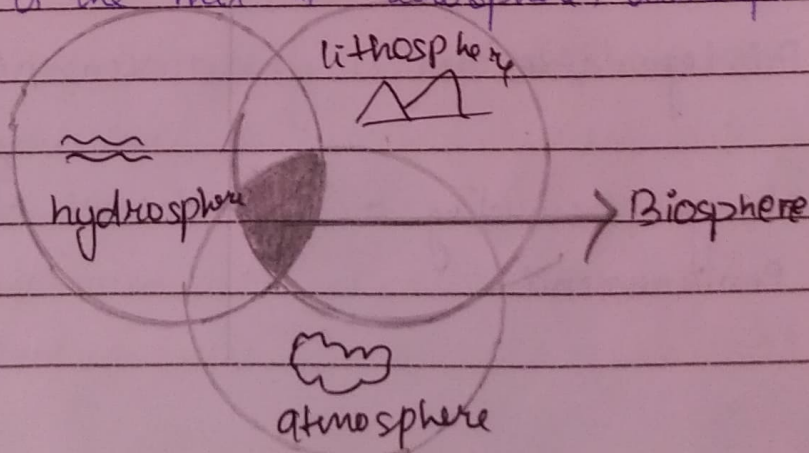 of the
lithosphere
hydrosphere
Biosphere
atmosphere